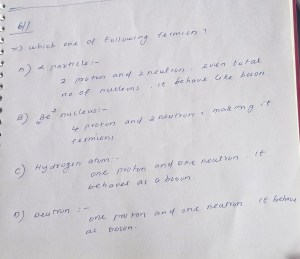 611
which one of following fermion?
A) α particle:-
2 proton and 2 neutron. Even total
no of nucleons. it behave like boson
B) Be² nucleus:-
4 proton and 2 neutron, making it
fermions
C) Hydrogen atom:-
one proton and one neutron it
behaves as a boson
D) Deutron:-
one proton and one neutron it behave
as boson.